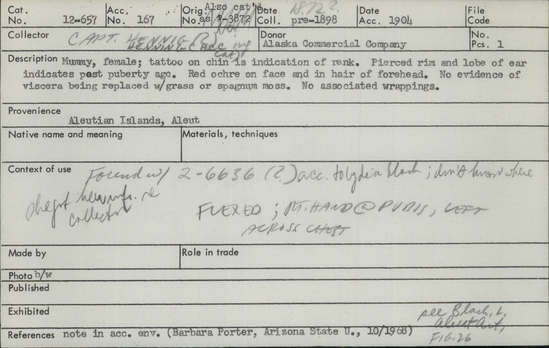 Cat. No. 12-657
Acc. No. 167
Orig. No.
Also cat'd as 2-3872
Date Coll. pre-1898
Date Acc. 1904
File Code
Collector CAPT. HENNIG
Donor Alaska Commercial Company
No. Pcs. 1
Description Mummy, female; tattoo on chin is indication of rank. Pierced rim and lobe of ear
indicates past puberty age. Red ochre on face and in hair of forehead. No evidence of
viscera being replaced w/grass or spagnum moss. No associated wrappings.
Provenience
Aleutian Islands, Aleut
Native name and meaning
Materials, techniques
Context of use Found w/ 2-6636 (?) acc. to Lydia Black; don't know where
she got new info. re
collector
FLEXED; RT. HAND @ PUBIS, LEFT
ACROSS CHEST
Made by
Role in trade
Photo b/w
Published
Exhibited
see Black, L,
Aleut Art,
FIG. 26
References note in acc. env. (Barbara Porter, Arizona State U., 10/1968)